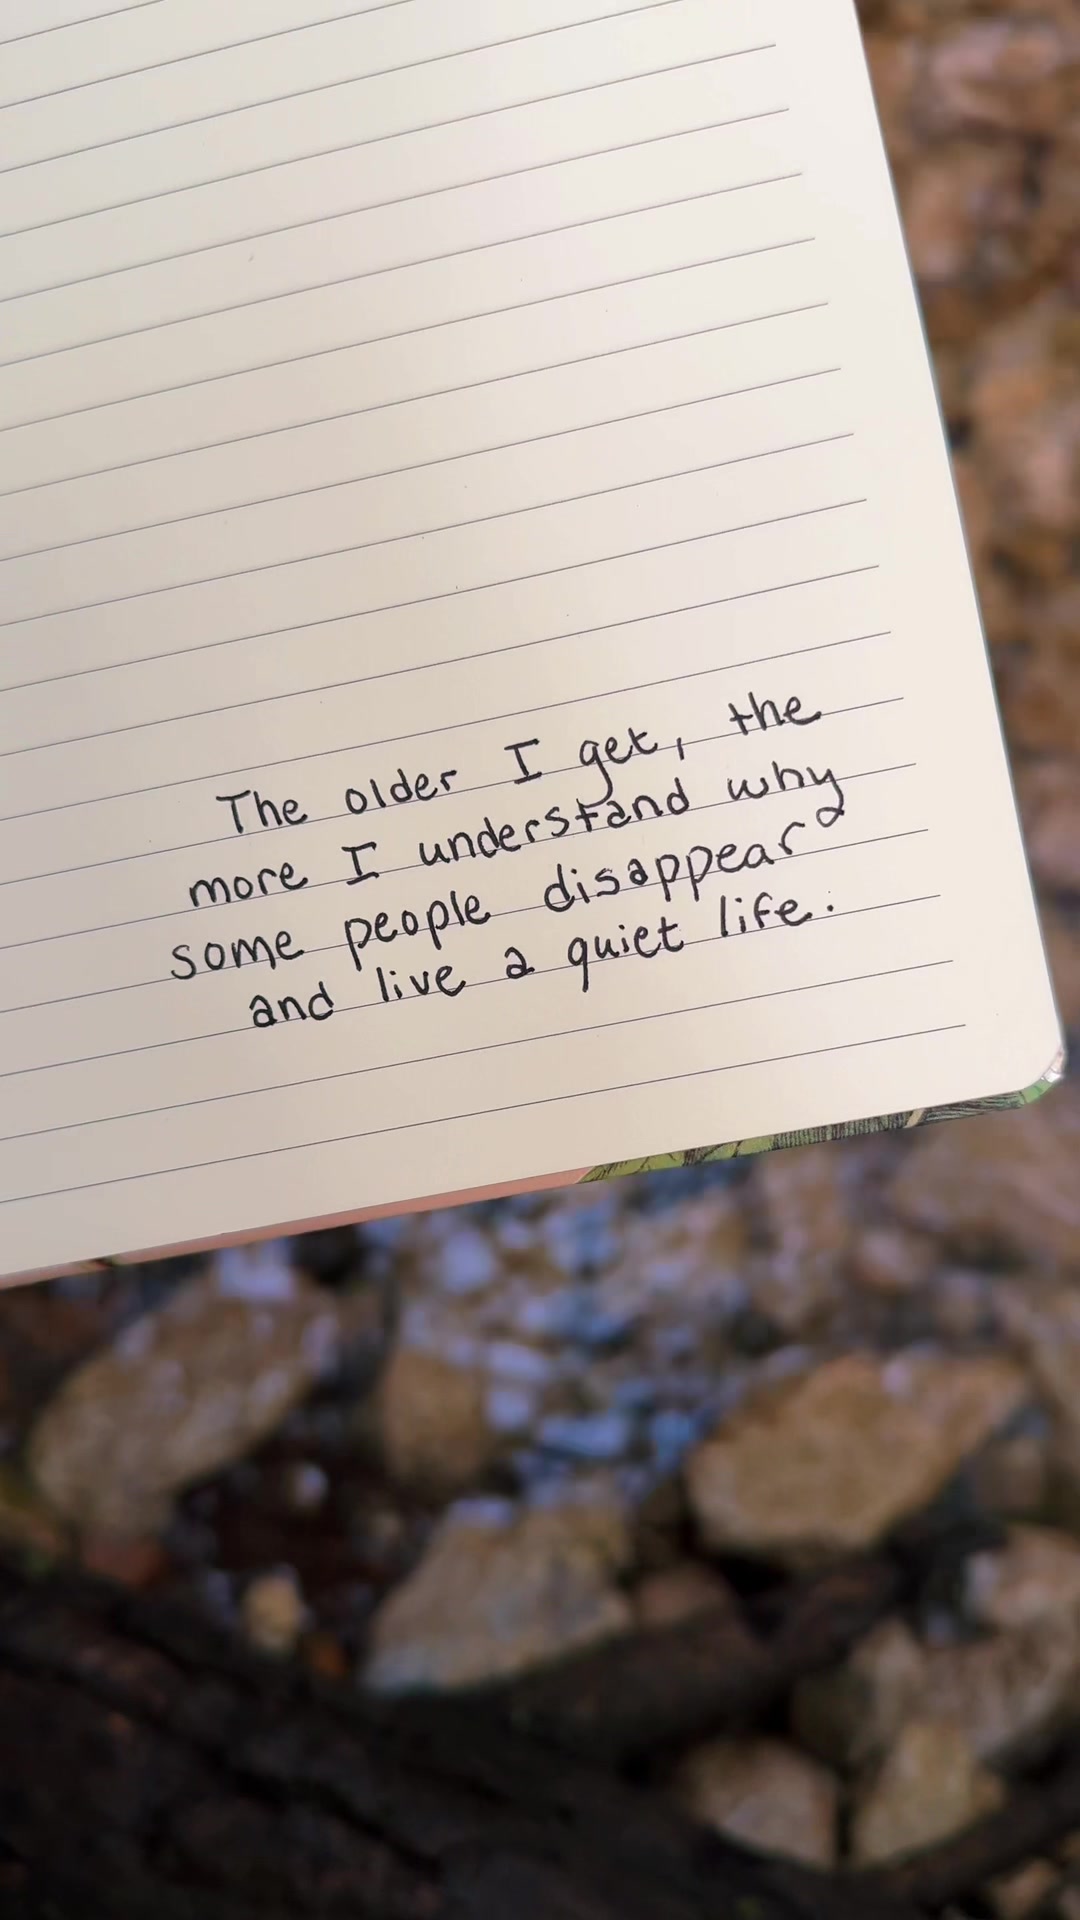 The older I get, the
more I understand why
some people disappear
and live a quiet life.